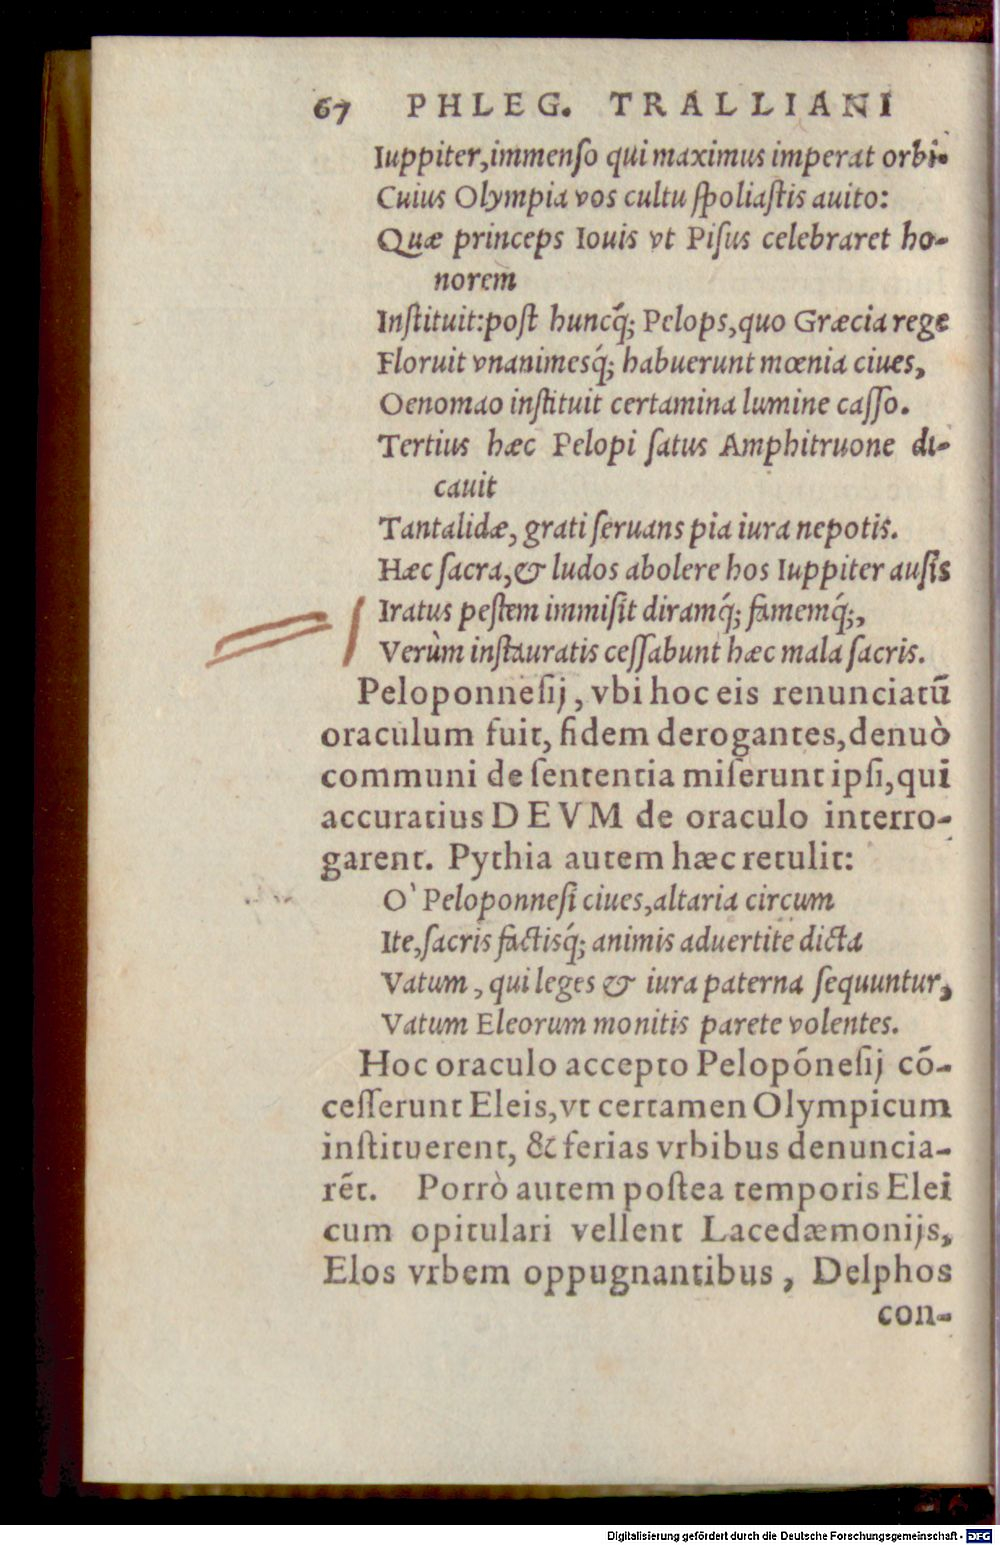 67 PHLEG. TRALLIANI
Iuppiter,immenſo qui maximus imperat orbi.
Cuius Olympia vos cultu ſpoliaſtis auito:
Quæ princeps Iouis vt Piſus celebraret ho-
norem
Inſtituit:poſt huncq́; Pelops,quo Græcia rege
Floruit vnanimesq́; habuerunt mœnia ciues,
Oenomao inſtituit certamina lumine caſſo.
Tertius hæc Pelopi ſatus Amphitruone di-
cauit
Tantalidæ, grati ſeruans pia iura nepotis.
Hæc ſacra,& ludos abolere hos Iuppiter auſis
Iratus peſtem immiſit diramq́; famemq́;,
Verùm inſtauratis ceſſabunt hæc mala ſacris.
Peloponneſij, vbi hoc eis renunciatū
oraculum fuit, fidem derogantes,denuò
communi de ſententia miſerunt ipſi,qui
accuratius DEVM de oraculo interro-
garent. Pythia autem hæc retulit:
O' Peloponneſi ciues,altaria circum
Ite,ſacris factisq́; animis aduertite dicta
Vatum, qui leges & iura paterna ſequuntur,
Vatum Eleorum monitis parete volentes.
Hoc oraculo accepto Pelopōneſij cō-
ceſſerunt Eleis,vt certamen Olympicum
inſtituerent, & ferias vrbibus denuncia-
rēt. Porrò autem poſtea temporis Elei
cum opitulari vellent Lacedæmonijs,
Elos vrbem oppugnantibus, Delphos
con-
Digitalisierung gefördert durch die Deutsche Forschungsgemeinschaft - DFG